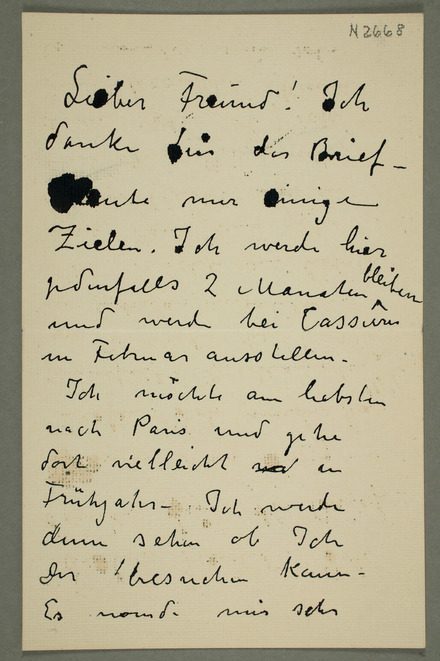 N2668
Lieber Freund! Ich
danke für den Brief –
Heute nur einige
Zielen. Ich werde hier
jedenfalls 2 Monaten bleiben
und werde bei Cassirer
in Februar ausstellen.
Ich möchte am liebsten
nach Paris und gehe
dort vielleicht in
Frühjahr – Ich werde
dann sehen ob Ich
Dir besuchen kann –
Es mir sehr